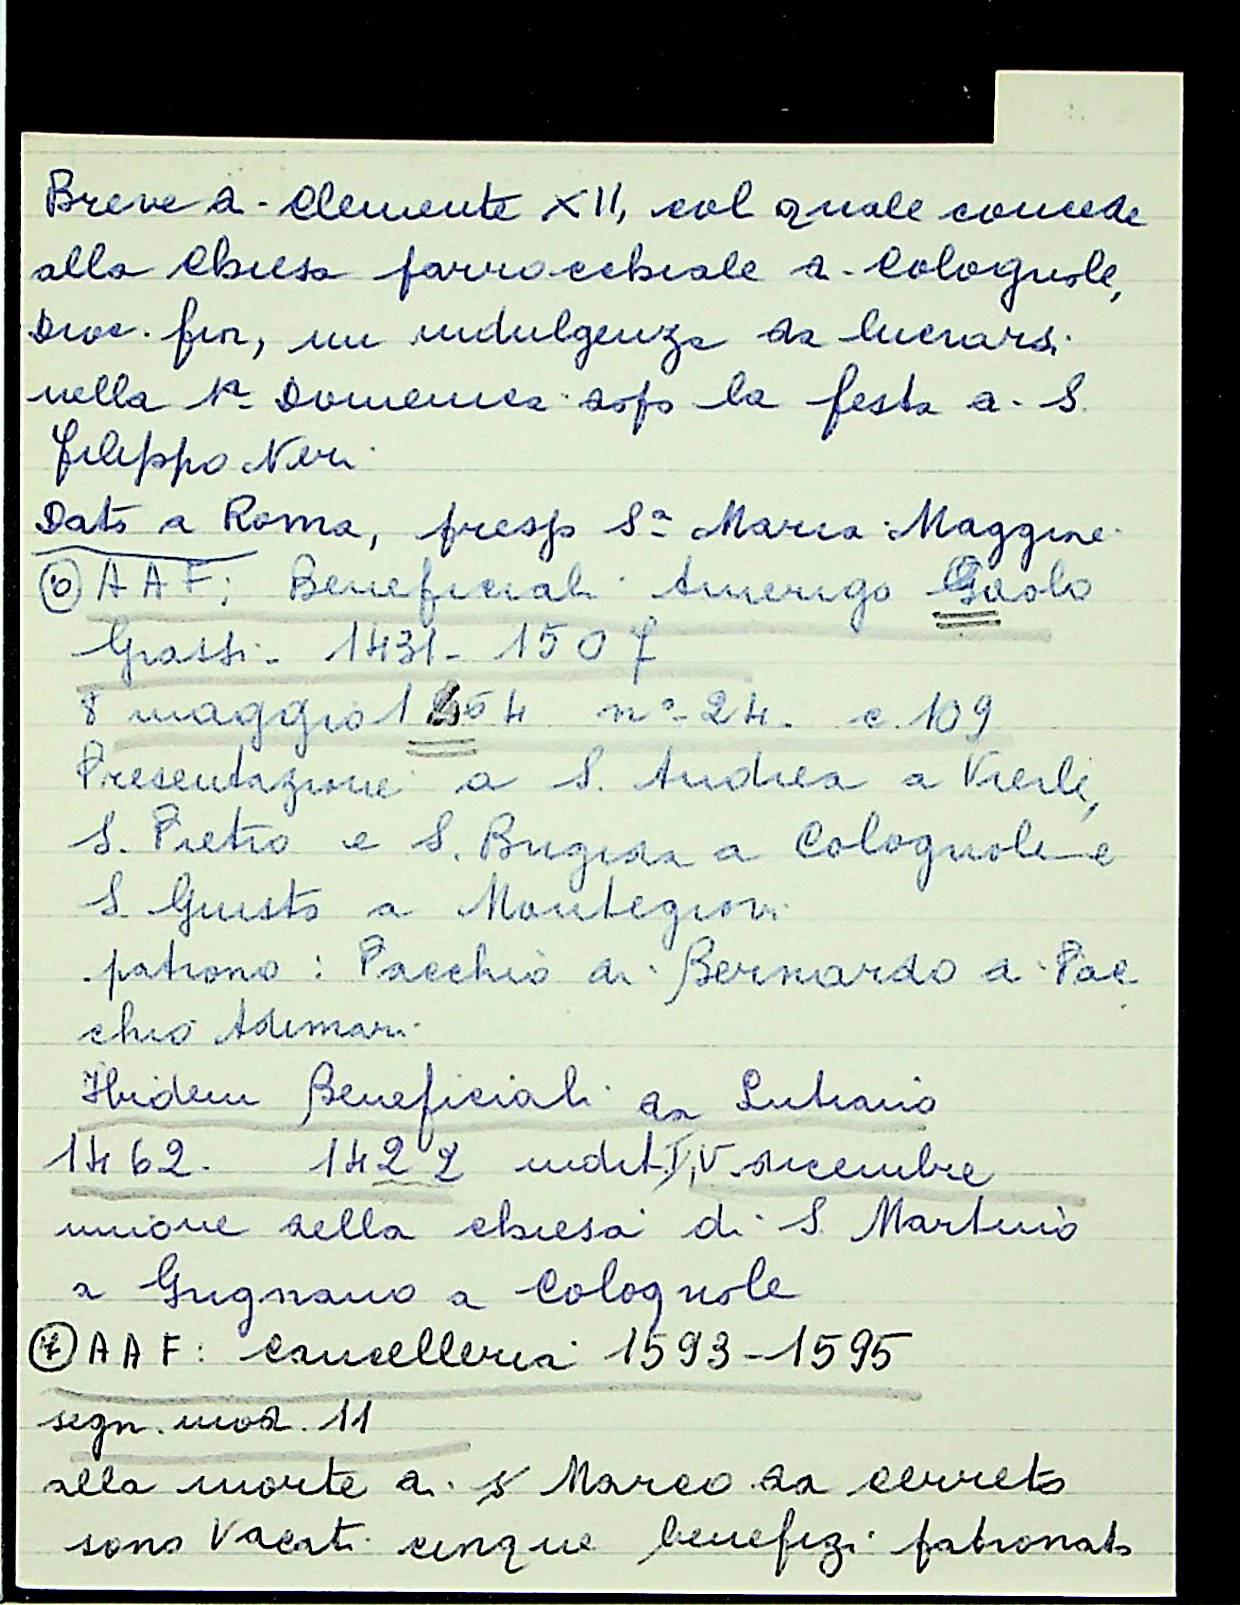 Breve di Clemente XII, col quale concede
alla chiesa parrocchiale di Colognole,
Dioc. fior, un indulgenza da lucrarsi
nella 1ª Domenica dopo la festa di S.
Filippo Neri
Dato a Roma, presso Sª Maria Maggiore
⑥ AAF; Beneficiali Amerigo Paolo
Grassi - 1431 - 1507
8 maggio 1464 nº 24. c. 109
Presentazione a S. Andrea a Vierli,
S. Pietro e S. Brigida a Colognole e
S. Giusto a Montegiovi
patrono: Pacchio di Bernardo di Pac
chio Adimari
Ibidem Beneficiali da Lutiano
1462. 1422 indit. IV dicembre
unione della chiesa di S. Martino
a Grignano a Colognole
⑦ AAF: Cancelleria 1593-1595
segn. mod. 11
alla morte di Marco da Cerreto
sono Vacati cinque benefizi patronato